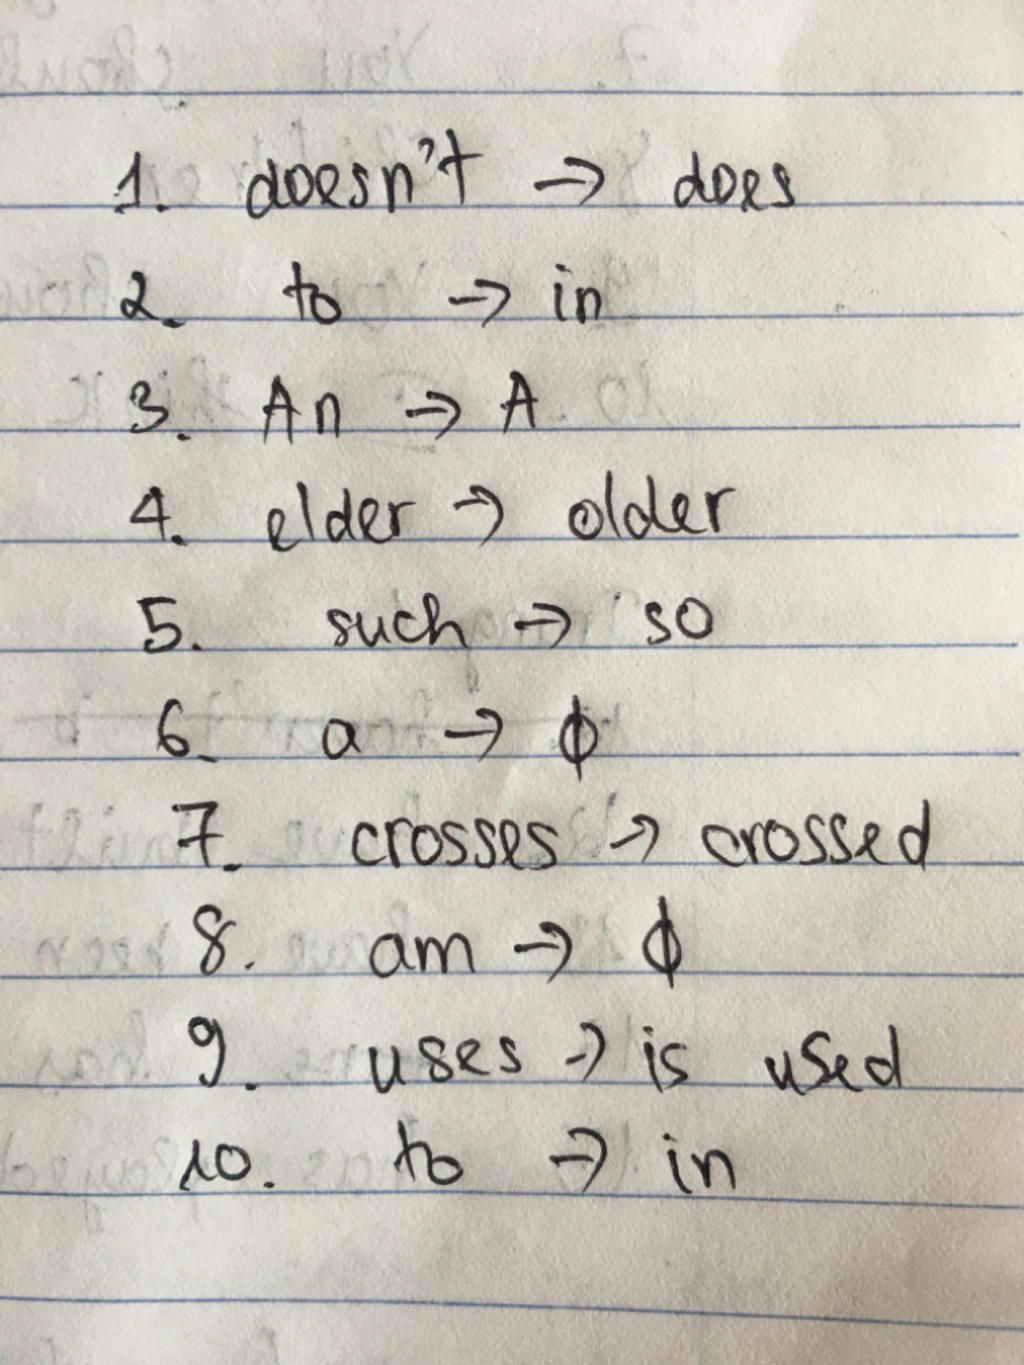 1. doesn't → does
2. to → in
3. An → A
4. elder → older
5. such → so
6. a → ϕ
7. crosses → crossed
8. am → ϕ
9. uses → is used
10. to → in